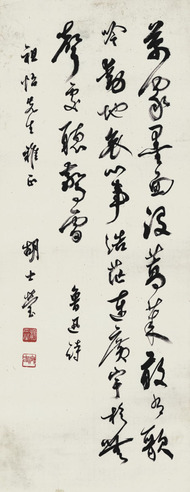 萬家墨面沒蒿萊敢有歌
吟動地哀心事浩茫連廣宇於無
聲處聽驚雷
魯迅詩
祖怡先生雅正
胡士瑩